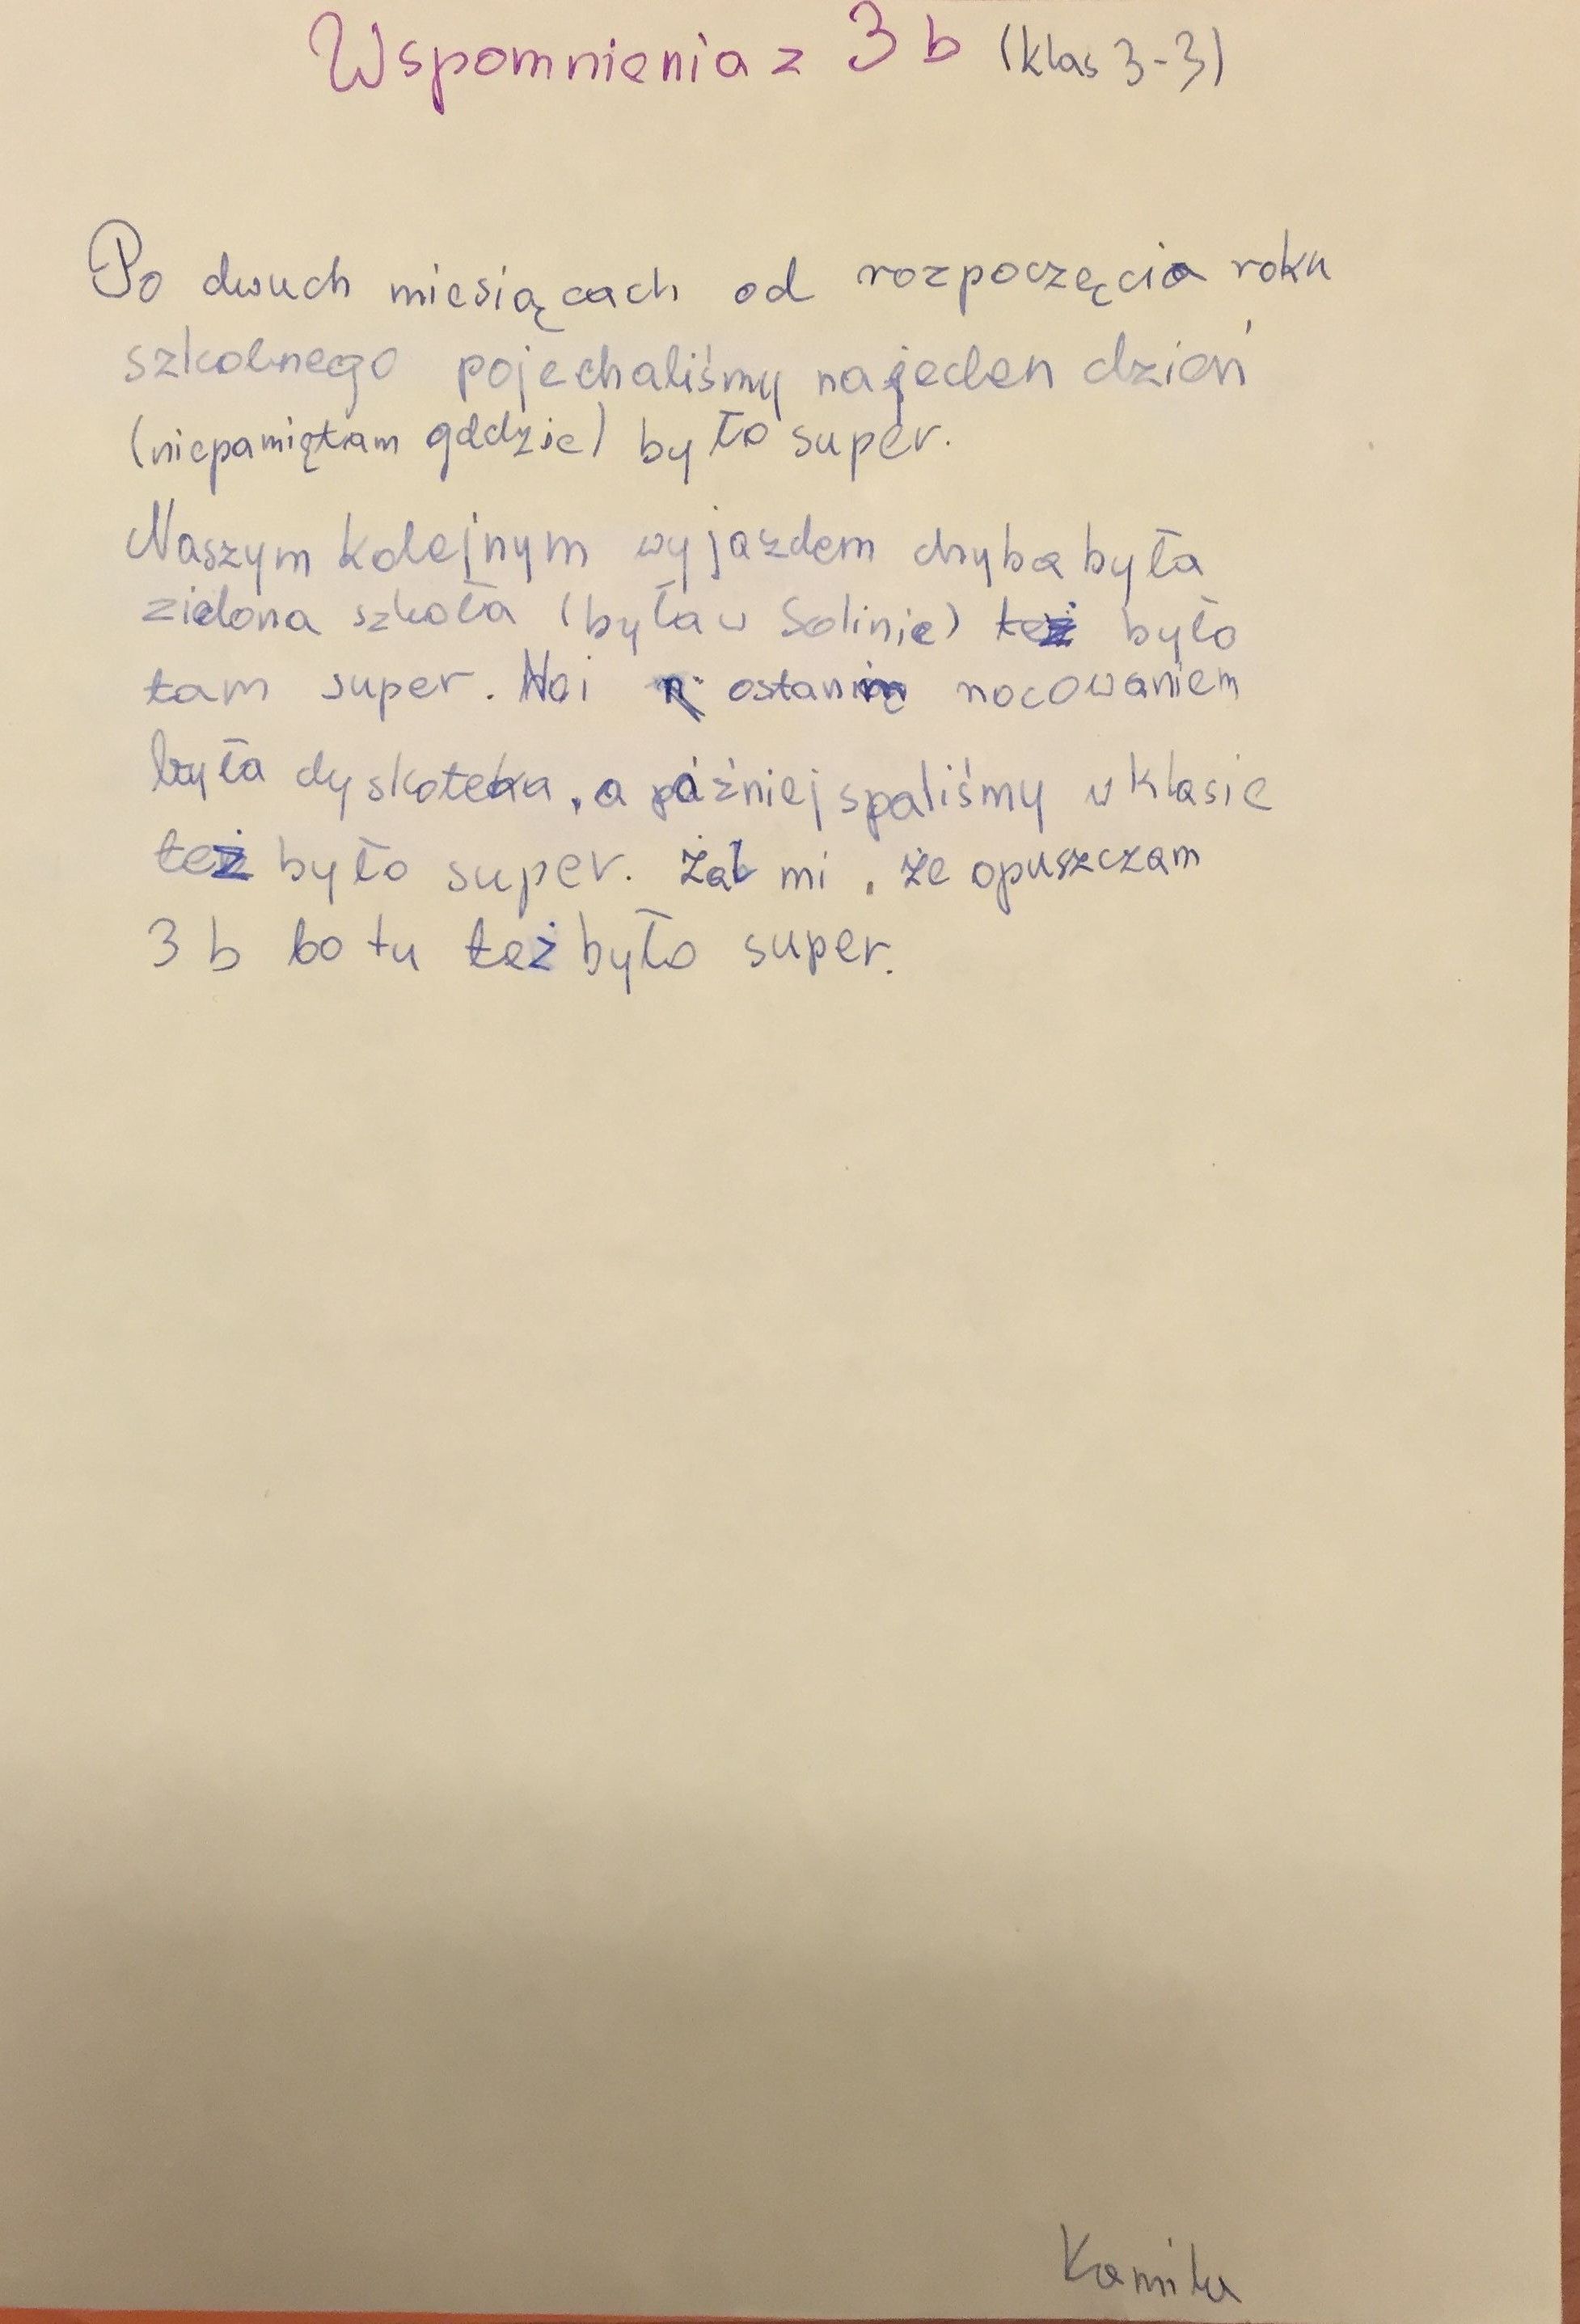 Wspomnienia z 3 b (klas 3-3)
Po dwuch miesiącach od rozpoczęcia roku
szkolnego pojechaliśmy na jeden dzień
(niepamiętam gddzie) było super.
Naszym kolejnym wyjazdem chyba była
zielona szkoła (była w Solinie) też było
tam super. No i ostanim nocowaniem
była dyskoteka, a później spaliśmy w klasie
też było super. Żal mi, że opuszczam
3 b bo tu też było super.
Kamila